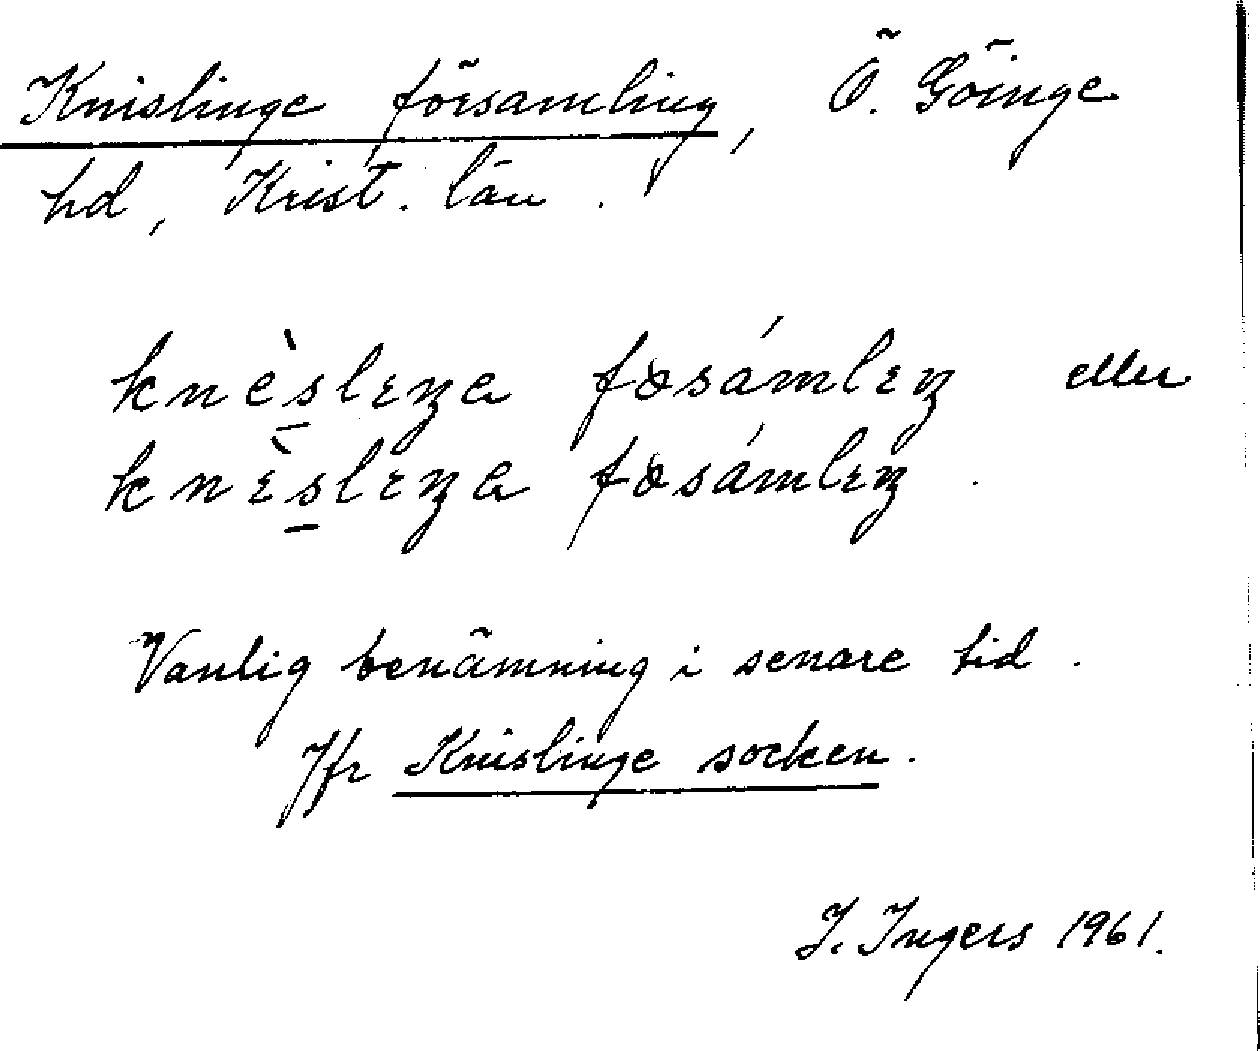 Knislinge församling, Ö. Göinge
hd, Krist. län.
knèslɪŋa fɔsámlɪŋ eller
knɪ̀slɪŋa fɔsámlɪŋ.
Vanlig benämning i senare tid.
Jfr Knislinge socken.
I. Ingers 1961.